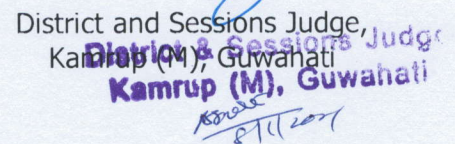 District and Sessions Judge,
Kamrup (M), Guwahati
District & Sessions Judge
Kamrup (M), Guwahati